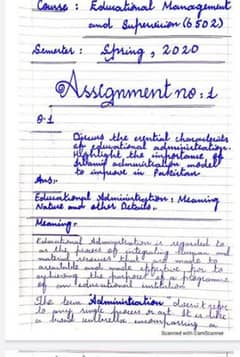 Course : Educational Management
and Supervision (6502)
Semester : Spring, 2020
Assignment no : 1
Q.1
Discuss the essential characteristics
of educational administration.
Highlight the importance of
Islamic administration model
to improve in Pakistan.
Ans:-
Educational Administration : Meaning
Nature and other Details:-
Meaning:-
Educational Administration is regarded to
as the process of integrating Human and
material resources that are made to
available and made effective for to
achieving the purpose of a programme
of an educational institution.
The term Administration doesn't refer
to any single process or act. It is like
a broad umbrella encompassing a
Scanned with CamScanner